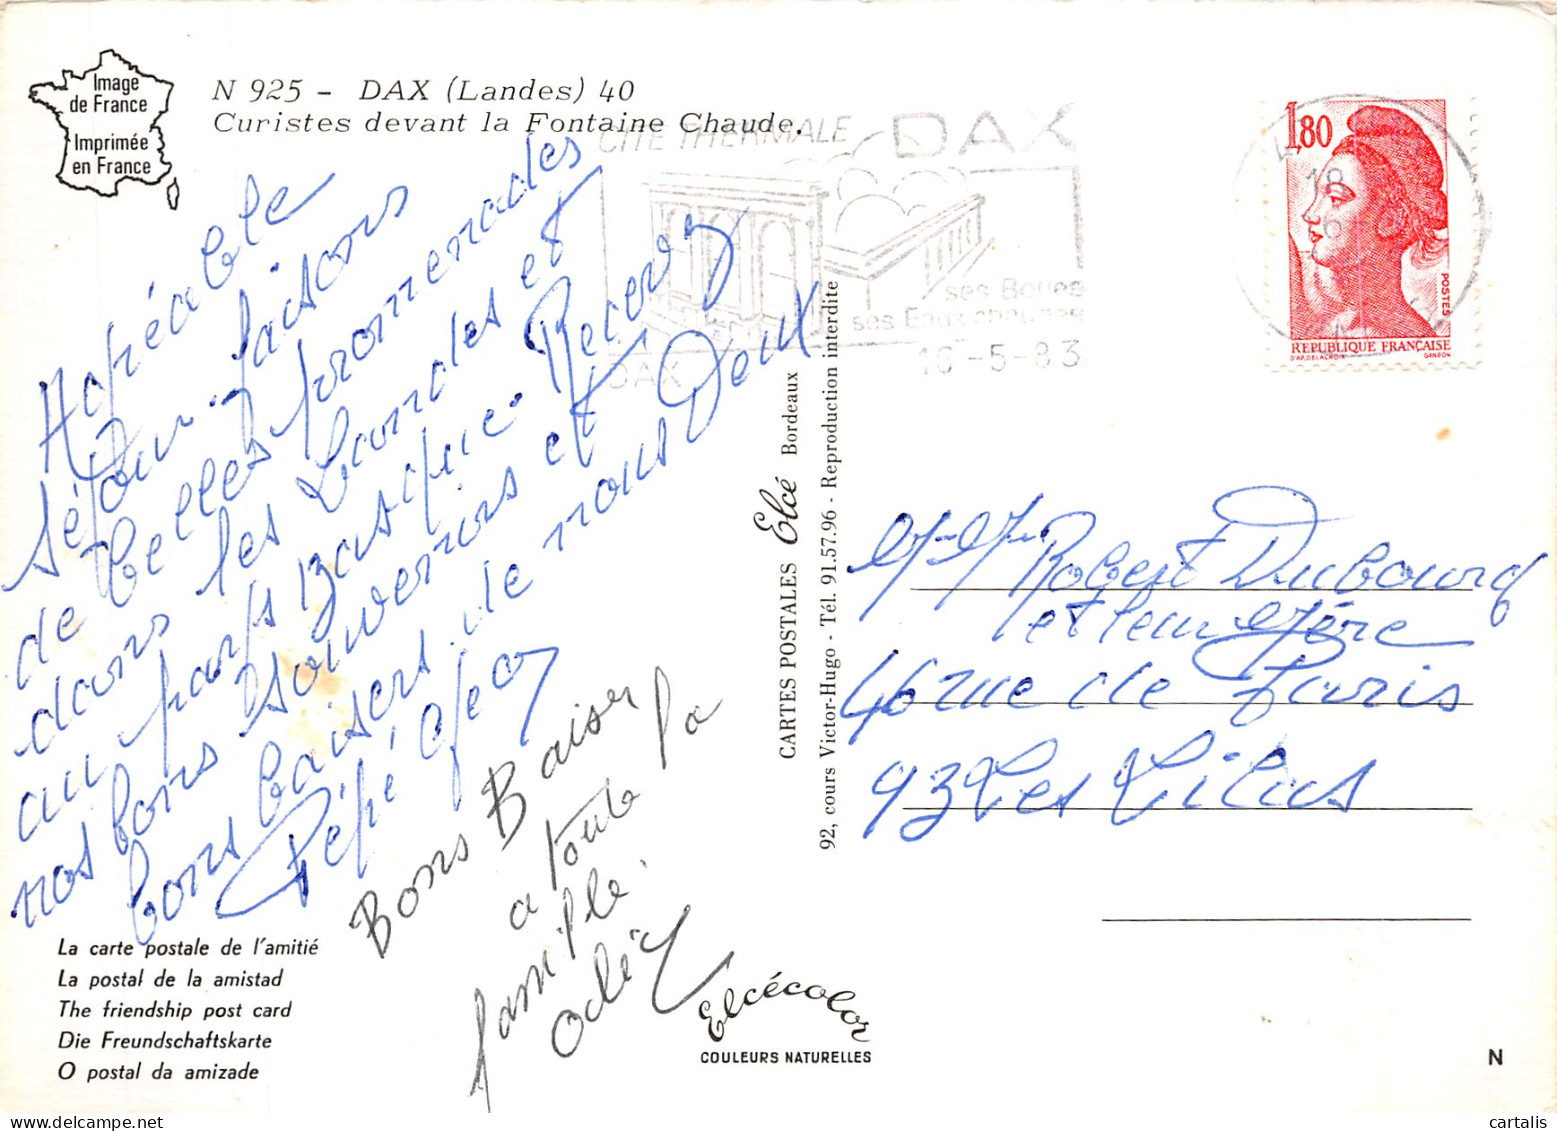 Image
de France
Imprimée
en France
N 925 - DAX (Landes) 40
Curistes devant la Fontaine Chaude.
CITÉ THERMALE DAX
ses Boues
ses Eaux chaudes
DAX 16-5-83
1,80
POSTES
REPUBLIQUE FRANÇAISE
D'AP. DELACROIX GANDON
Agréable
séjour. faisons
de belles promenades
dans les Landes et
au pays Basque. Recevez
nos bons souvenirs et
bons baisers de nous Deux
Pépé
Bons Baiser
a toute la
famille.
Odéy
CARTES POSTALES Elcé Bordeaux
92, cours Victor-Hugo - Tél. 91.57.96 - Reproduction interdite
M. Mme Robert Dubourg
et leur Mère
46 rue de Paris
93 Les Lilas
La carte postale de l'amitié
La postal de la amistad
The friendship post card
Die Freundschaftskarte
O postal da amizade
Elcécolor
COULEURS NATURELLES
N
cartalis